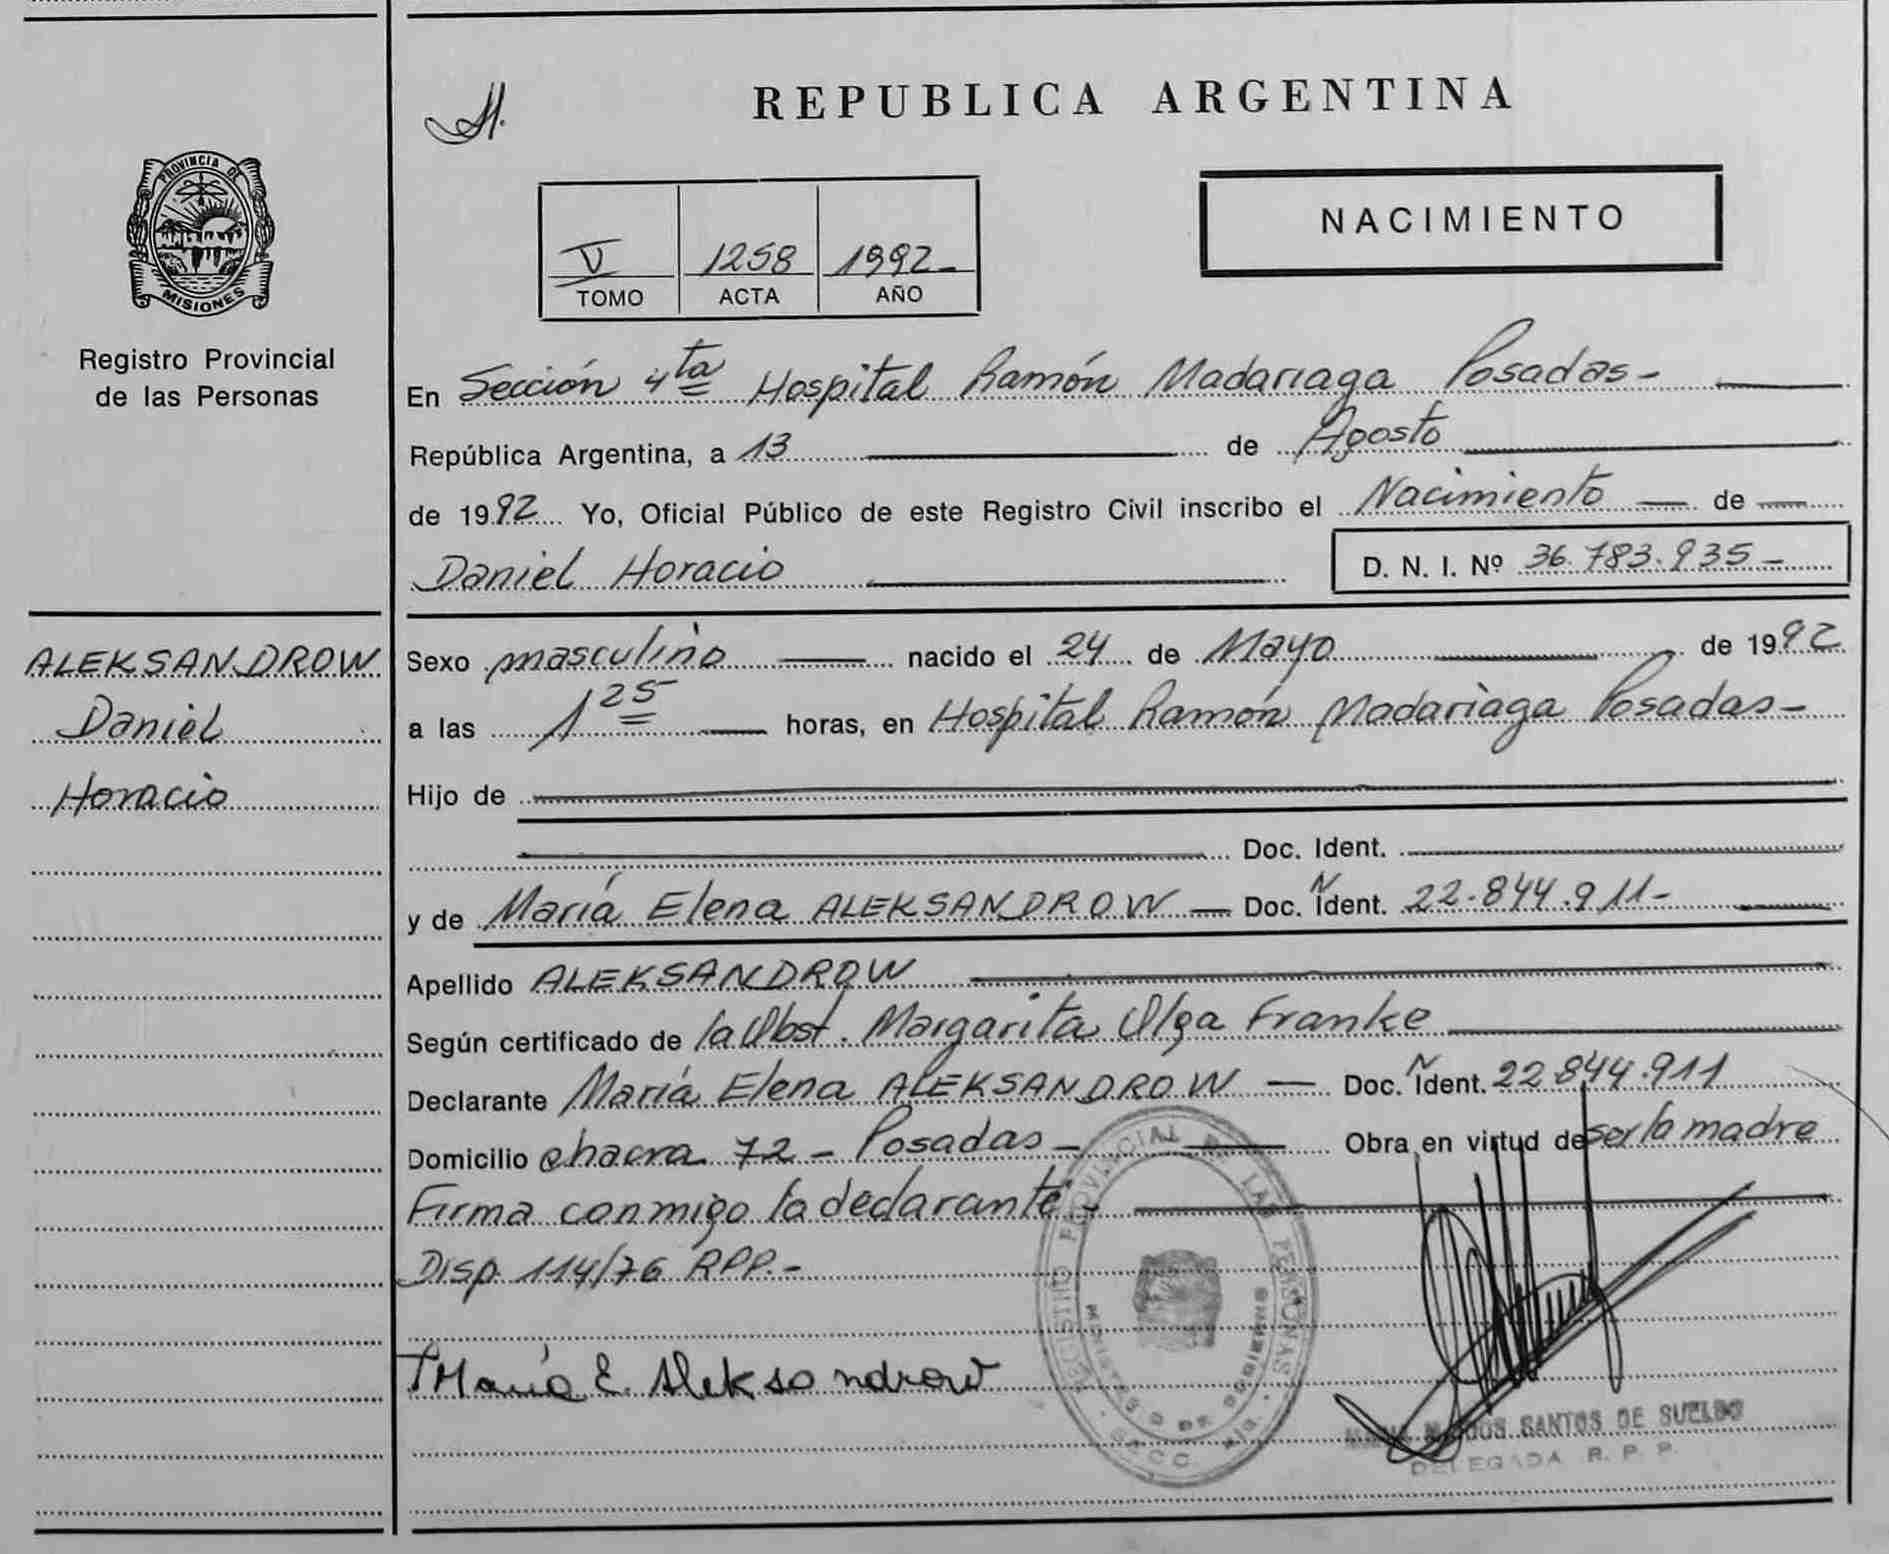 PROVINCIA DE
MISIONES
Registro Provincial
de las Personas
ALEKSANDROW
Daniel
Horacio
REPUBLICA ARGENTINA
NACIMIENTO
V 1258 1992-
TOMO ACTA AÑO
En Sección 4ta Hospital Ramón Madariaga Posadas-
República Argentina, a 13 de Agosto
de 1992 Yo, Oficial Público de este Registro Civil inscribo el Nacimiento — de —
Daniel Horacio D. N. I. Nº 36.783.935-
Sexo masculino — nacido el 24 de Mayo de 1992
a las 1 25 — horas, en Hospital Ramón Madariaga Posadas-
Hijo de
Doc. Ident.
y de María Elena ALEKSANDROW — Doc. Ident. 22.844.911-
Apellido ALEKSANDROW
Según certificado de la Obst. Margarita Olga Franke
Declarante María Elena ALEKSANDROW — Doc. Ident. 22.844.911
Domicilio chacra 72 - Posadas - Obra en virtud de ser la madre
Firma conmigo la declarante-
Disp. 114/76 RPP.-
María E. Aleksandrow
REGISTRO PROVINCIAL DE LAS PERSONAS
MINISTERIO DE GOBIERNO
DOS SANTOS DE SUELDO
DELEGADA R. P. P.